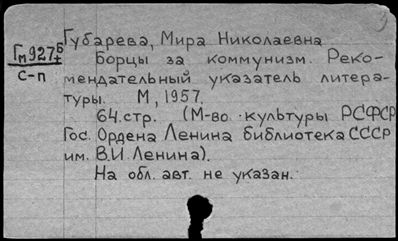 Губарева, Мира Николаевна
Гм 927 Б
С-п
Борцы за коммунизм. Реко-
мендательный указатель литера-
туры. М, 1957.
64.стр. (М-во культуры РСФСР
Гос. Ордена Ленина библиотека СССР
им. В.И Ленина).
На обл. авт. не указан.